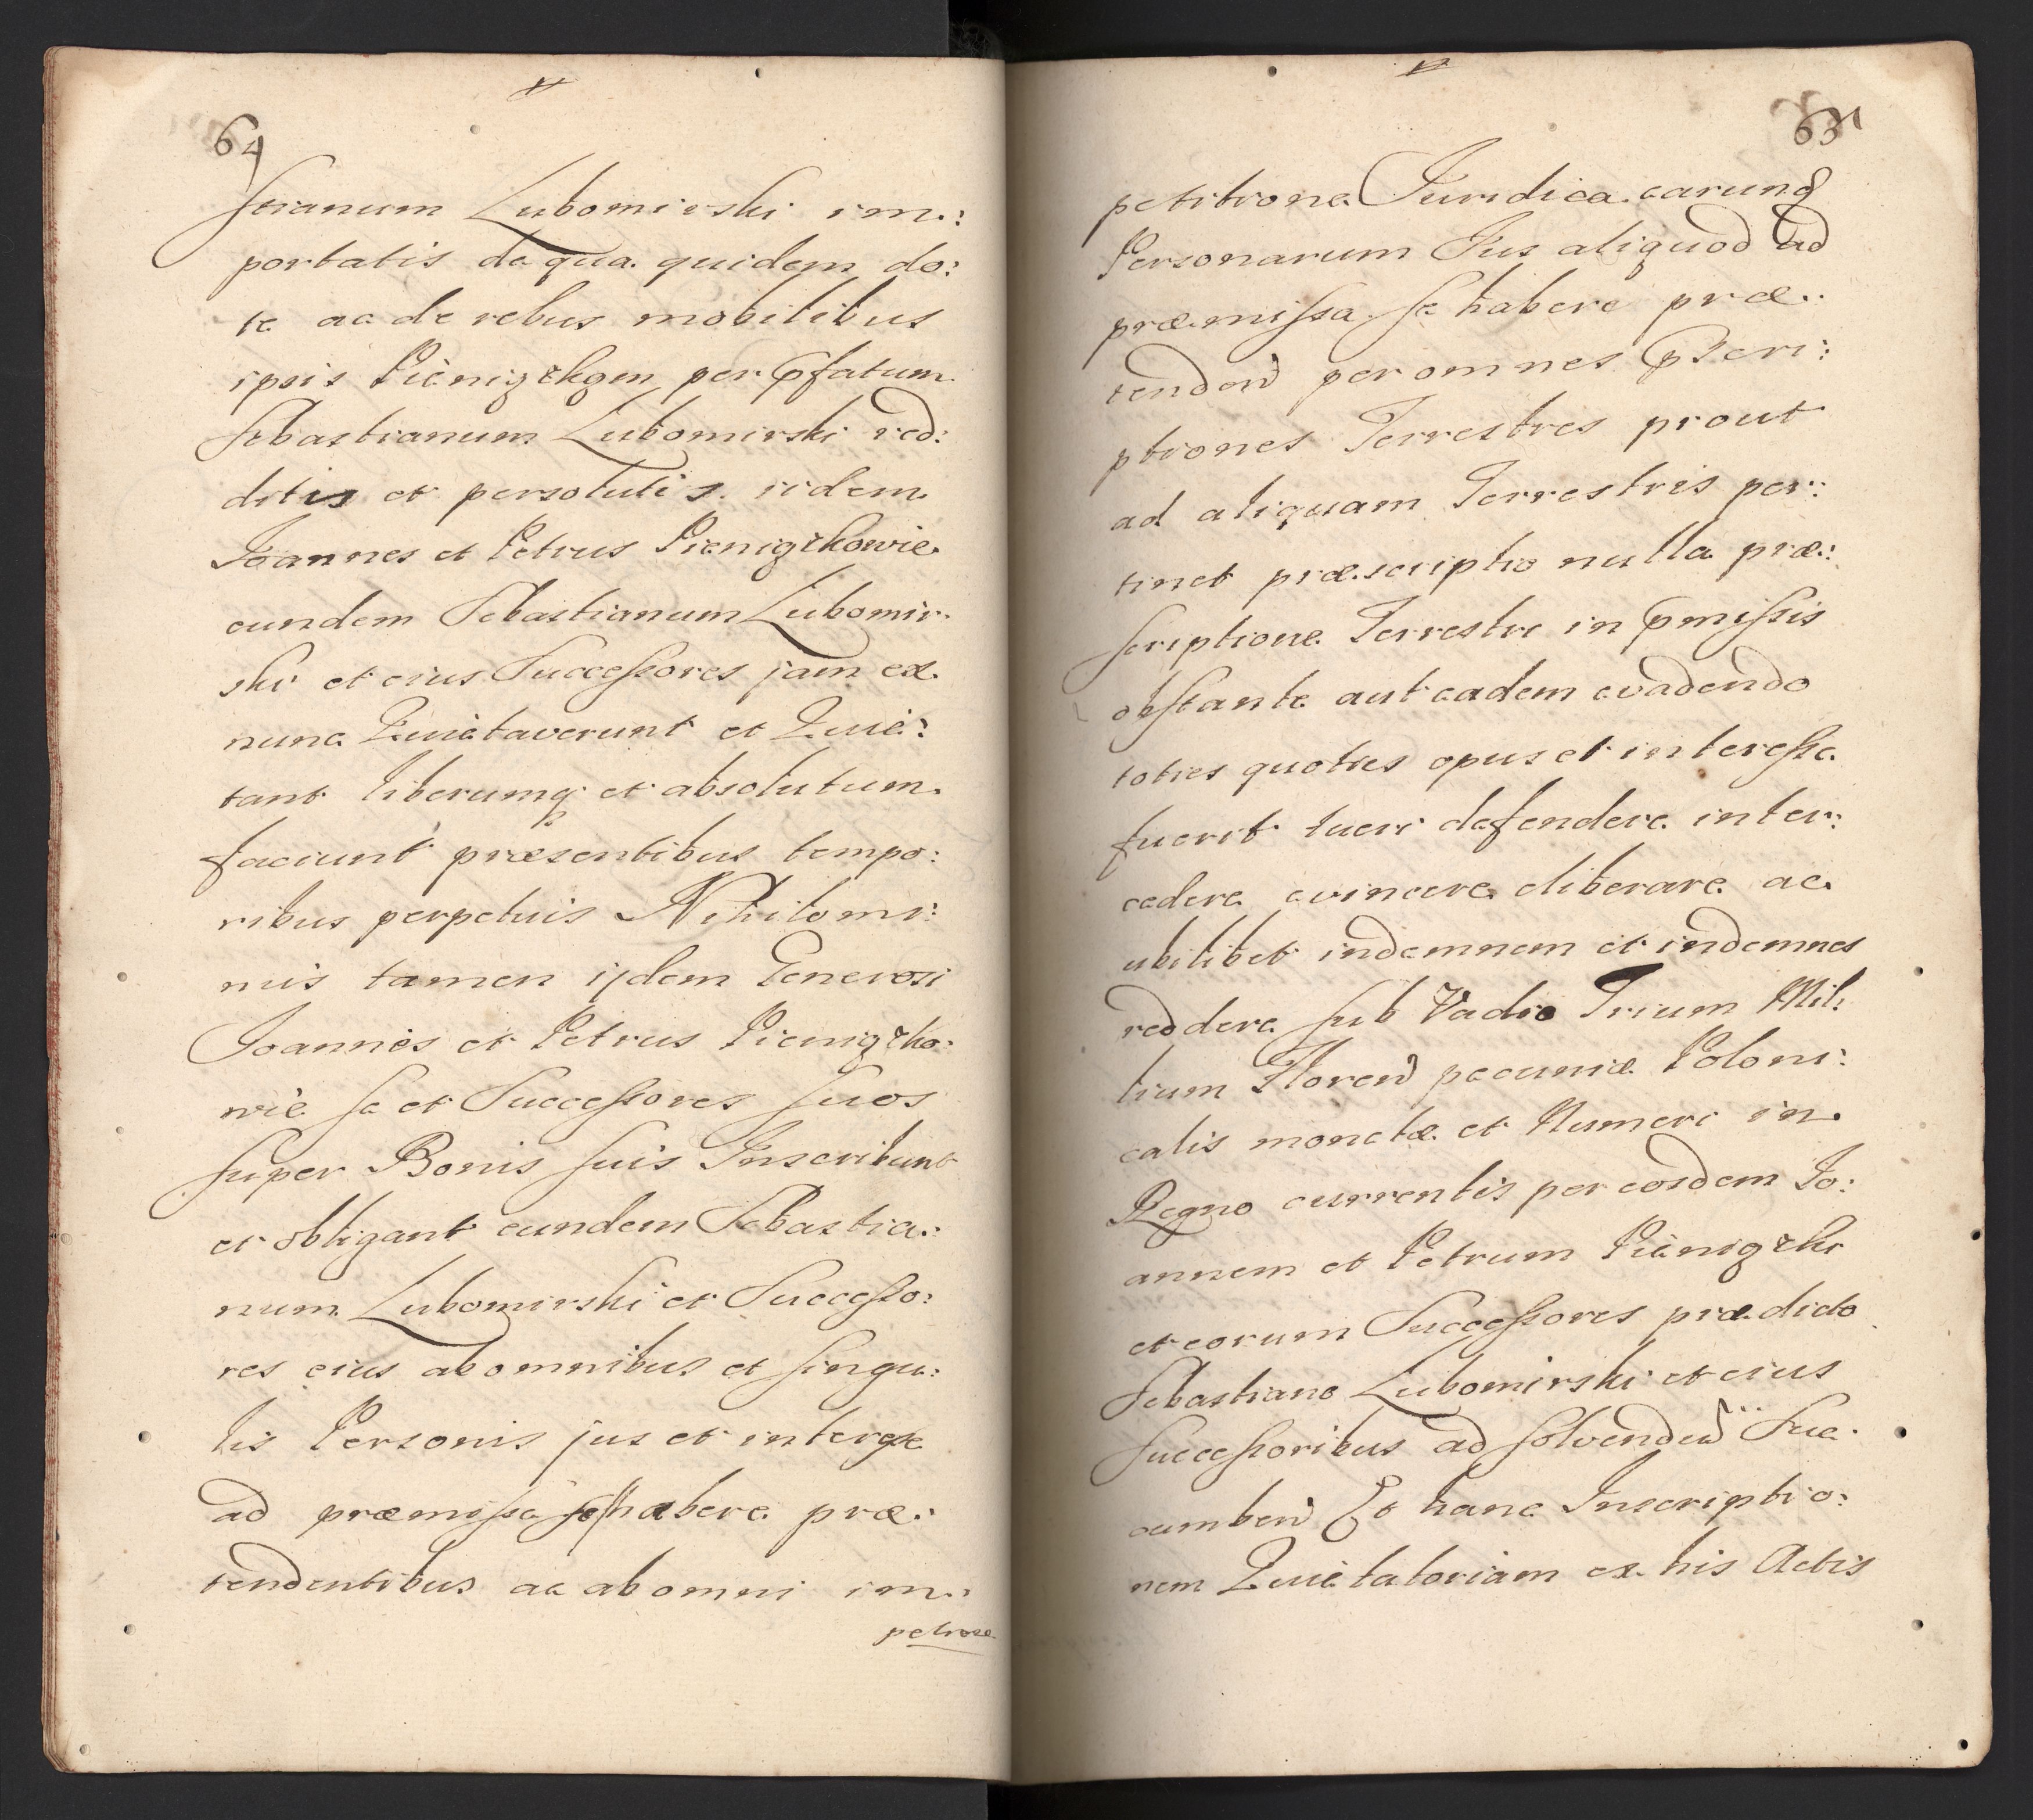 64
stianum Lubomirski im:
portatis de qua quidem do:
te ac de rebus mobilibus
ipsis Pieniązkom per pfatum
Sebastianum Lubomirski red:
ditis et persolutis iidem
Joannes et Petrus Pieniązkowie
eundem Sebastianum Lubomir
ski et eius Successores jam ex
nunc Quietaverunt et Quie:
tant liberumq et absolutum
faciunt præsentibus tempo:
ribus perpetuis Nihilomi:
nus tamen ijdem Generosi
Joannes et Petrus Pieniązko
wie se et Successores suos
super Bonis suis Inscribunt
et obligant eundem Sebastia:
num Lubomirski et Successo:
res eius ab omnibus et singu:
lis Personis jus et interesse
ad præmissa se habere præ:
tendentibus ac ab omni im:
petitione
65
petitione Juridica earunq
Personarum Jus aliquod ad
præmissa se habere præ:
tenden per omnes pscri:
ptiones Terrestres prout
ad aliquam Terrestris per:
tinet præscriptio nulla præ:
scriptione Terrestri in pmissis
obstante aut eadem evadendo
toties quoties opus et interesse
fuerit tueri defendere inter:
cedere evincere eliberare ac
ubilibet indemnem et indemnes
reddere sub Vadio Trium Mil:
lium Floren pecuniæ Poloni:
calis monetæ et Numeri in
Regno currentis per eosdem Jo:
annem et Petrum Pieniązki
et eorum Successores prædicto
Sebastiano Lubomirski et eius
Successoribus ad solvendum Suc
cumben Et hanc Inscriptio:
nem Quietatoriam ex his Actis